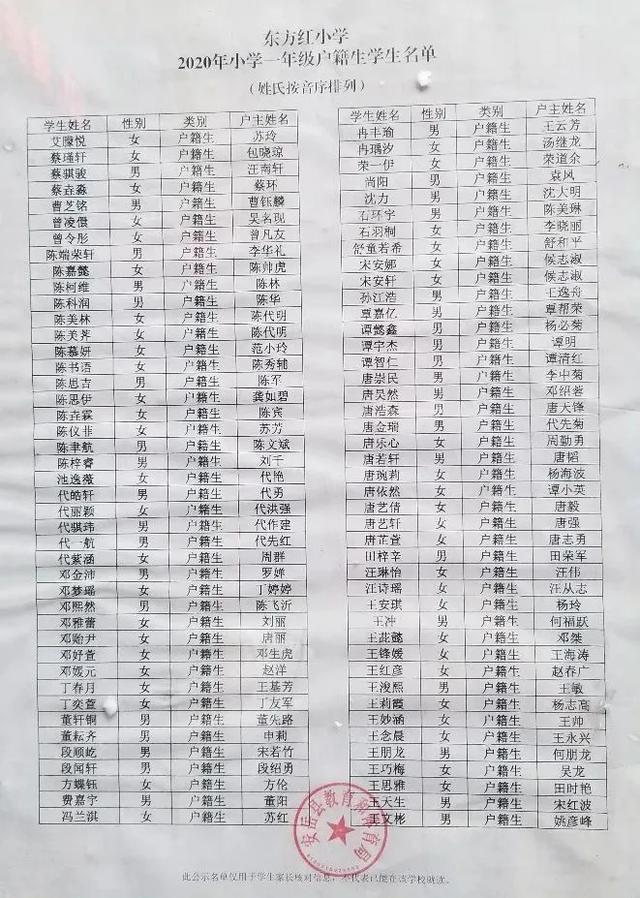 东方红小学
2020年小学一年级户籍生学生名单
（姓氏按音序排列）
学生姓名 性别 类别 户主姓名
艾朦悦 女 户籍生 苏玲
蔡瑾轩 女 户籍生 包晓琼
蔡骐骏 男 户籍生 汪南轩
蔡垚淼 女 户籍生 蔡环
曹芝铭 男 户籍生 曹钰麟
曾凌儇 女 户籍生 吴名现
曾令彤 女 户籍生 曾凡友
陈端荣轩 男 户籍生 李华礼
陈嘉懿 女 户籍生 陈帅虎
陈柯维 男 户籍生 陈林
陈科润 男 户籍生 陈华
陈美林 女 户籍生 陈代明
陈美荠 女 户籍生 陈代明
陈慕妍 女 户籍生 范小玲
陈书语 女 户籍生 陈秀辅
陈思吉 男 户籍生 陈军
陈思伊 女 户籍生 龚如碧
陈垚霖 女 户籍生 陈宾
陈仪非 女 户籍生 苏芳
陈聿航 男 户籍生 陈文斌
陈梓睿 男 户籍生 刘千
池逸薇 女 户籍生 代艳
代皓轩 男 户籍生 代勇
代丽颖 女 户籍生 代洪强
代骐玮 男 户籍生 代作建
代一航 男 户籍生 代先红
代紫涵 女 户籍生 周群
邓金沛 男 户籍生 罗婵
邓梦瑶 女 户籍生 丁婷婷
邓熙然 男 户籍生 陈飞沂
邓雅蕾 女 户籍生 刘丽
邓贻尹 女 户籍生 唐丽
邓妤萱 女 户籍生 邓生虎
邓媛元 女 户籍生 赵洋
丁春月 女 户籍生 王基芳
丁奕萱 女 户籍生 丁友军
董轩铜 男 户籍生 董先路
董耘齐 男 户籍生 申莉
段顺屹 男 户籍生 宋若竹
段闻轩 男 户籍生 段绍勇
方蝶钰 女 户籍生 方伦
费嘉宇 男 户籍生 董阳
冯兰淇 女 户籍生 苏红
学生姓名 性别 类别 户主姓名
冉丰瑜 男 户籍生 王云芳
冉瑀汐 女 户籍生 汤继龙
荣一伊 女 户籍生 荣道余
尚阳 男 户籍生 袁凤
沈力 男 户籍生 沈大明
石环宇 男 户籍生 陈美琳
石羽桐 女 户籍生 李晓丽
舒童若希 女 户籍生 舒和平
宋安娜 女 户籍生 候志淑
宋安轩 女 户籍生 候志淑
孙江浩 男 户籍生 王逸舟
覃嘉亿 男 户籍生 覃帮荣
谭懿鑫 男 户籍生 杨必菊
谭宇杰 男 户籍生 谭明
谭智仁 男 户籍生 谭清红
唐崇民 男 户籍生 李中菊
唐昊然 男 户籍生 邓绍蓉
唐浩森 男 户籍生 唐大锋
唐金瑞 男 户籍生 代先菊
唐乐心 女 户籍生 周勤勇
唐若轩 男 户籍生 唐韬
唐琬莉 女 户籍生 杨海波
唐依然 女 户籍生 谭小英
唐艺倩 女 户籍生 唐毅
唐艺轩 女 户籍生 唐强
唐芷萱 女 户籍生 唐志勇
田梓辛 男 户籍生 田荣军
汪琳怡 女 户籍生 汪伟
汪诗瑶 女 户籍生 汪从志
王安琪 女 户籍生 杨玲
王冲 男 户籍生 何福跃
王茈懿 女 户籍生 邓桀
王锋媛 女 户籍生 王海涛
王红彦 女 户籍生 赵春广
王浚熙 男 户籍生 王敏
王莉霞 女 户籍生 杨志高
王妙涵 女 户籍生 王帅
王念晨 女 户籍生 王永兴
王朋龙 男 户籍生 何朋龙
王巧梅 女 户籍生 吴龙
王思雅 女 户籍生 田时艳
王天生 男 户籍生 宋红波
王文彬 男 户籍生 姚彦峰
安岳县教育和体育局
此公示名单仅用于学生家长核对信息，不代表已能在该学校就读。